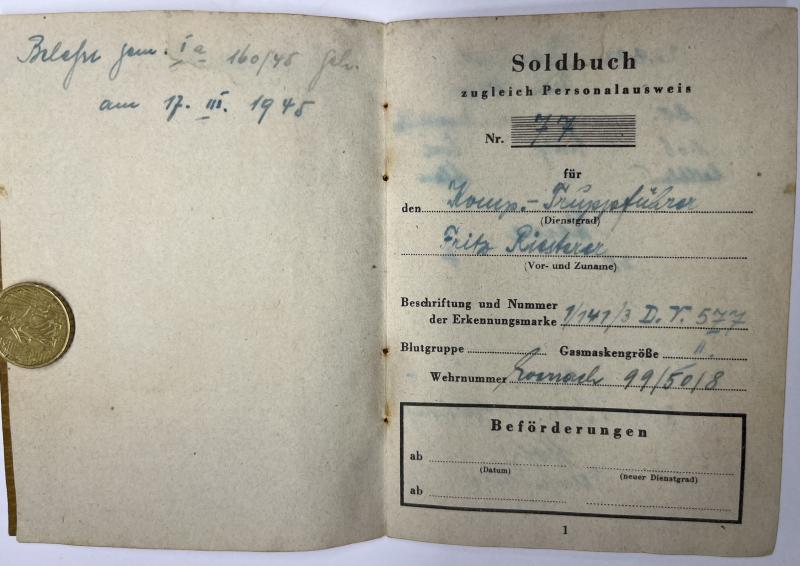 Belehrt gem. Ia 160/45 Geh.
am 17. III. 1945
Soldbuch
zugleich Personalausweis
Nr. 77
für
den Komp.-Truppführer
(Dienstgrad)
Fritz Riesterer
(Vor- und Zuname)
Beschriftung und Nummer
der Erkennungsmarke 1/141/3 D.V. 577
Blutgruppe Gasmaskengröße II.
Wehrnummer 99/50/8
Beförderungen
ab
(Datum) (neuer Dienstgrad)
ab
1